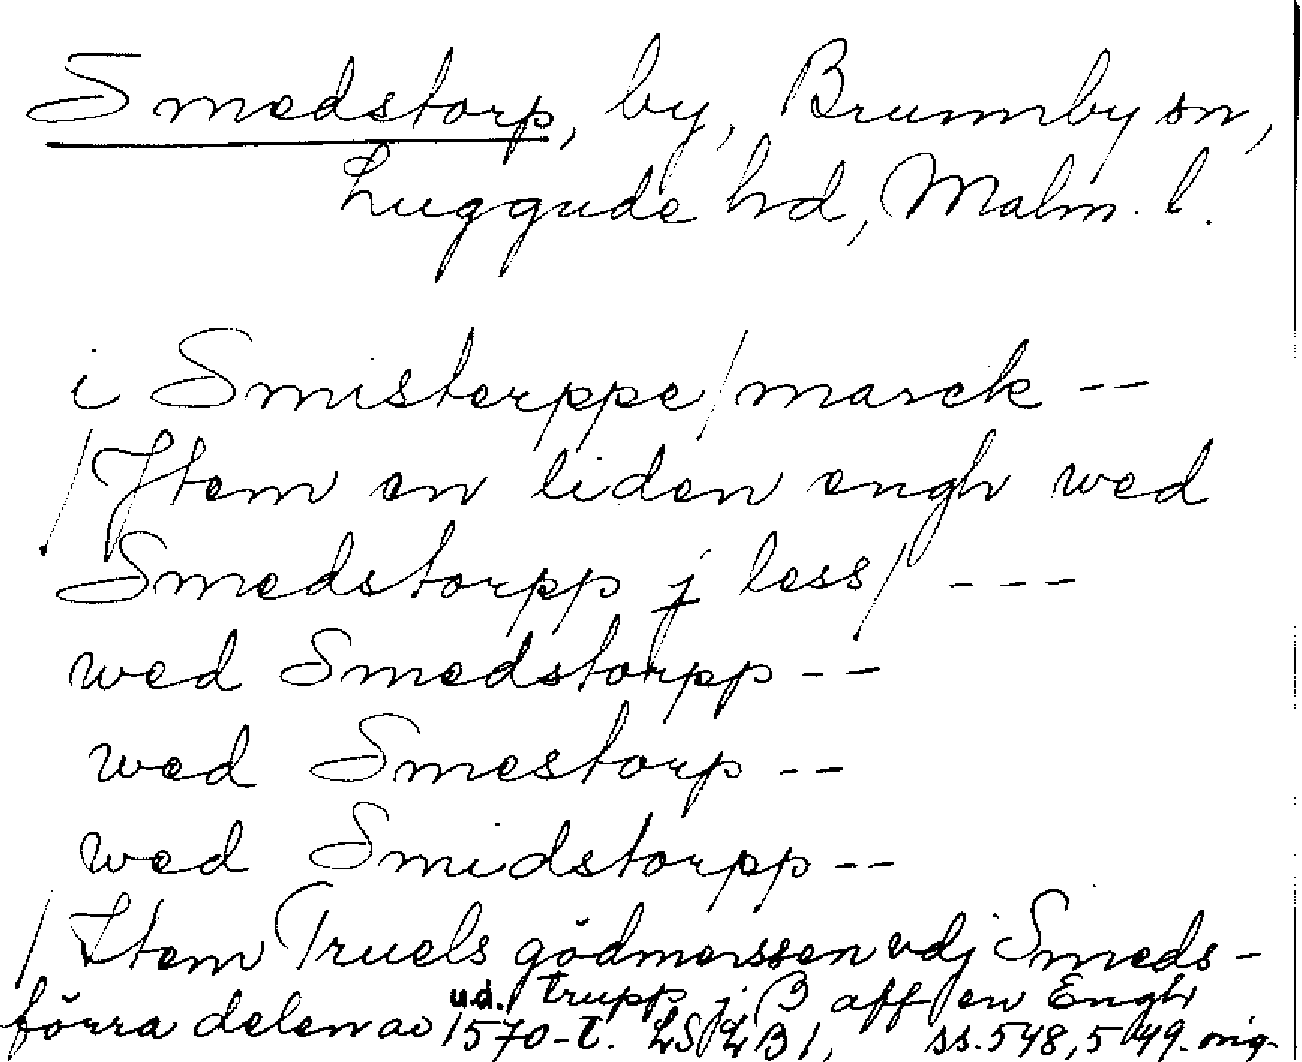 Smedstorp, by, Brunnby sn,
Luggude hd, Malm. l.
i Smisterppe/marck --
/Jtem en liden engh wed
Smedstorpp j less/ ---
wed Smedstorpp --
wed Smestorp --
wed Smidstorpp --
/Item Truels gödmerssen vdj Smeds-
u.d. trupp j B aff en Engh
förra delen av 1570-t. LSLB1, ss. 548, 549. orig.